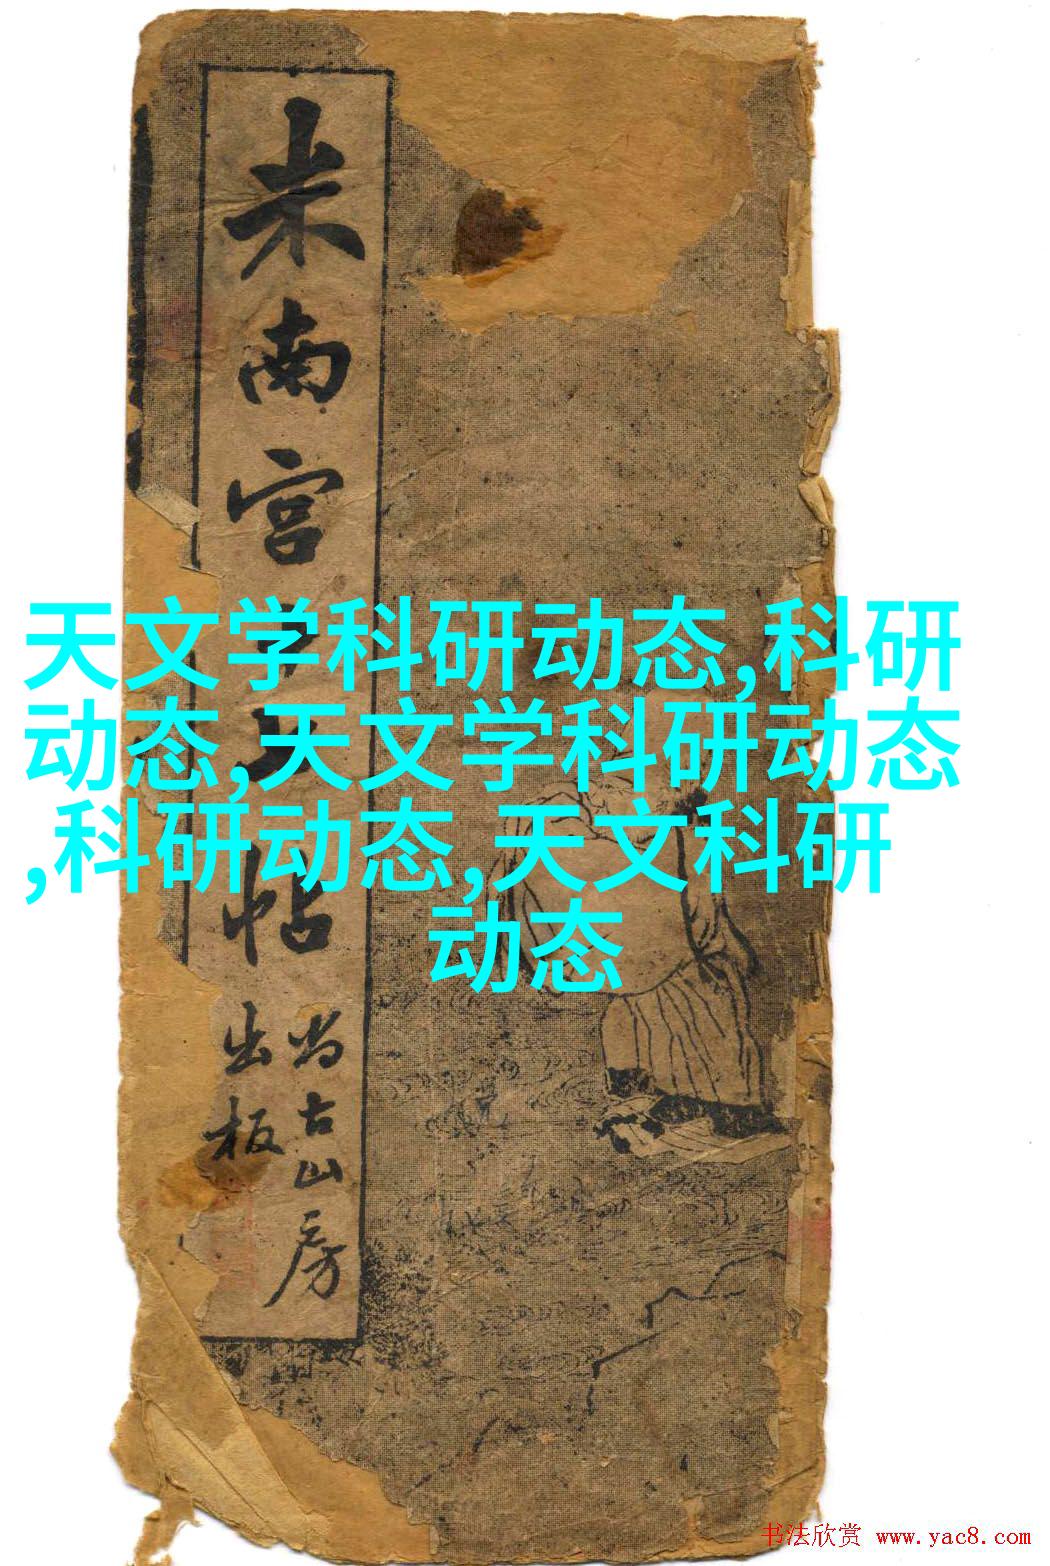 天文学科研动态,科研
动态,天文学科研动态
,科研动态,天文科研
动态
米南宫
帖
尚古山房
出板
书法欣赏 www.yac8.com